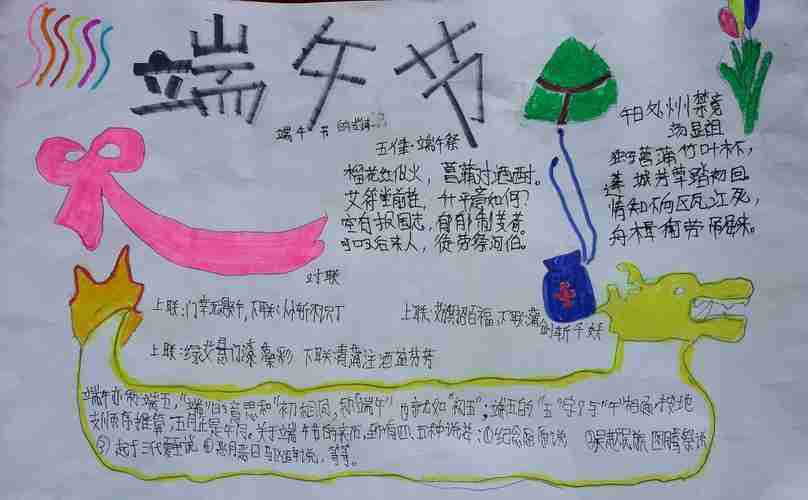 端午节
端午节的
五律·端午祭
榴花红似火，菖蒲对酒酣。
艾符堂前挂，升平意如何？
空有报国志，
后来人，徒劳祭河伯。
午日处州禁竞
汤显祖
独写菖蒲竹叶杯，
莲城芳草踏初回。
情知不向瓯江死，
舟楫何劳吊屈来。
对联
上联：门幸无题午，下联：
上联：招百福，下联：蒲剑斩千妖
上联：绿艾悬门漆彩 下联：青蒲注酒益芬芳
端午亦称端五，“端”的意思和“初”相同，称“端午”也就如“初五”；端五的“五”字又与“午”相通，按地
支顺序推算，五月正是午月。关于端午节的来历，到有四五种说法：①纪念屈原说 ②吴越民族图腾祭说
③起于三代夏至说 ④恶月恶日驱避说，等等。